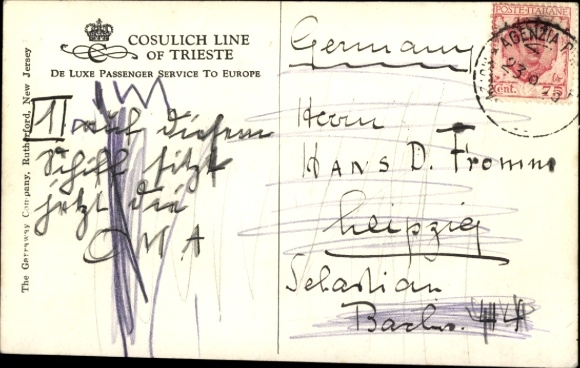 COSULICH LINE
OF TRIESTE
DE LUXE PASSENGER SERVICE TO EUROPE
The Garraway Company, Rutherford, New Jersey
auf diesem
Schiff sitzt
jetzt die
OMA
POSTE·ITALIANE
AGENZIA
Cent. 75
Germany
Herrn
HANS D. Fromm
Leipzig
Sebastian
Bach
44